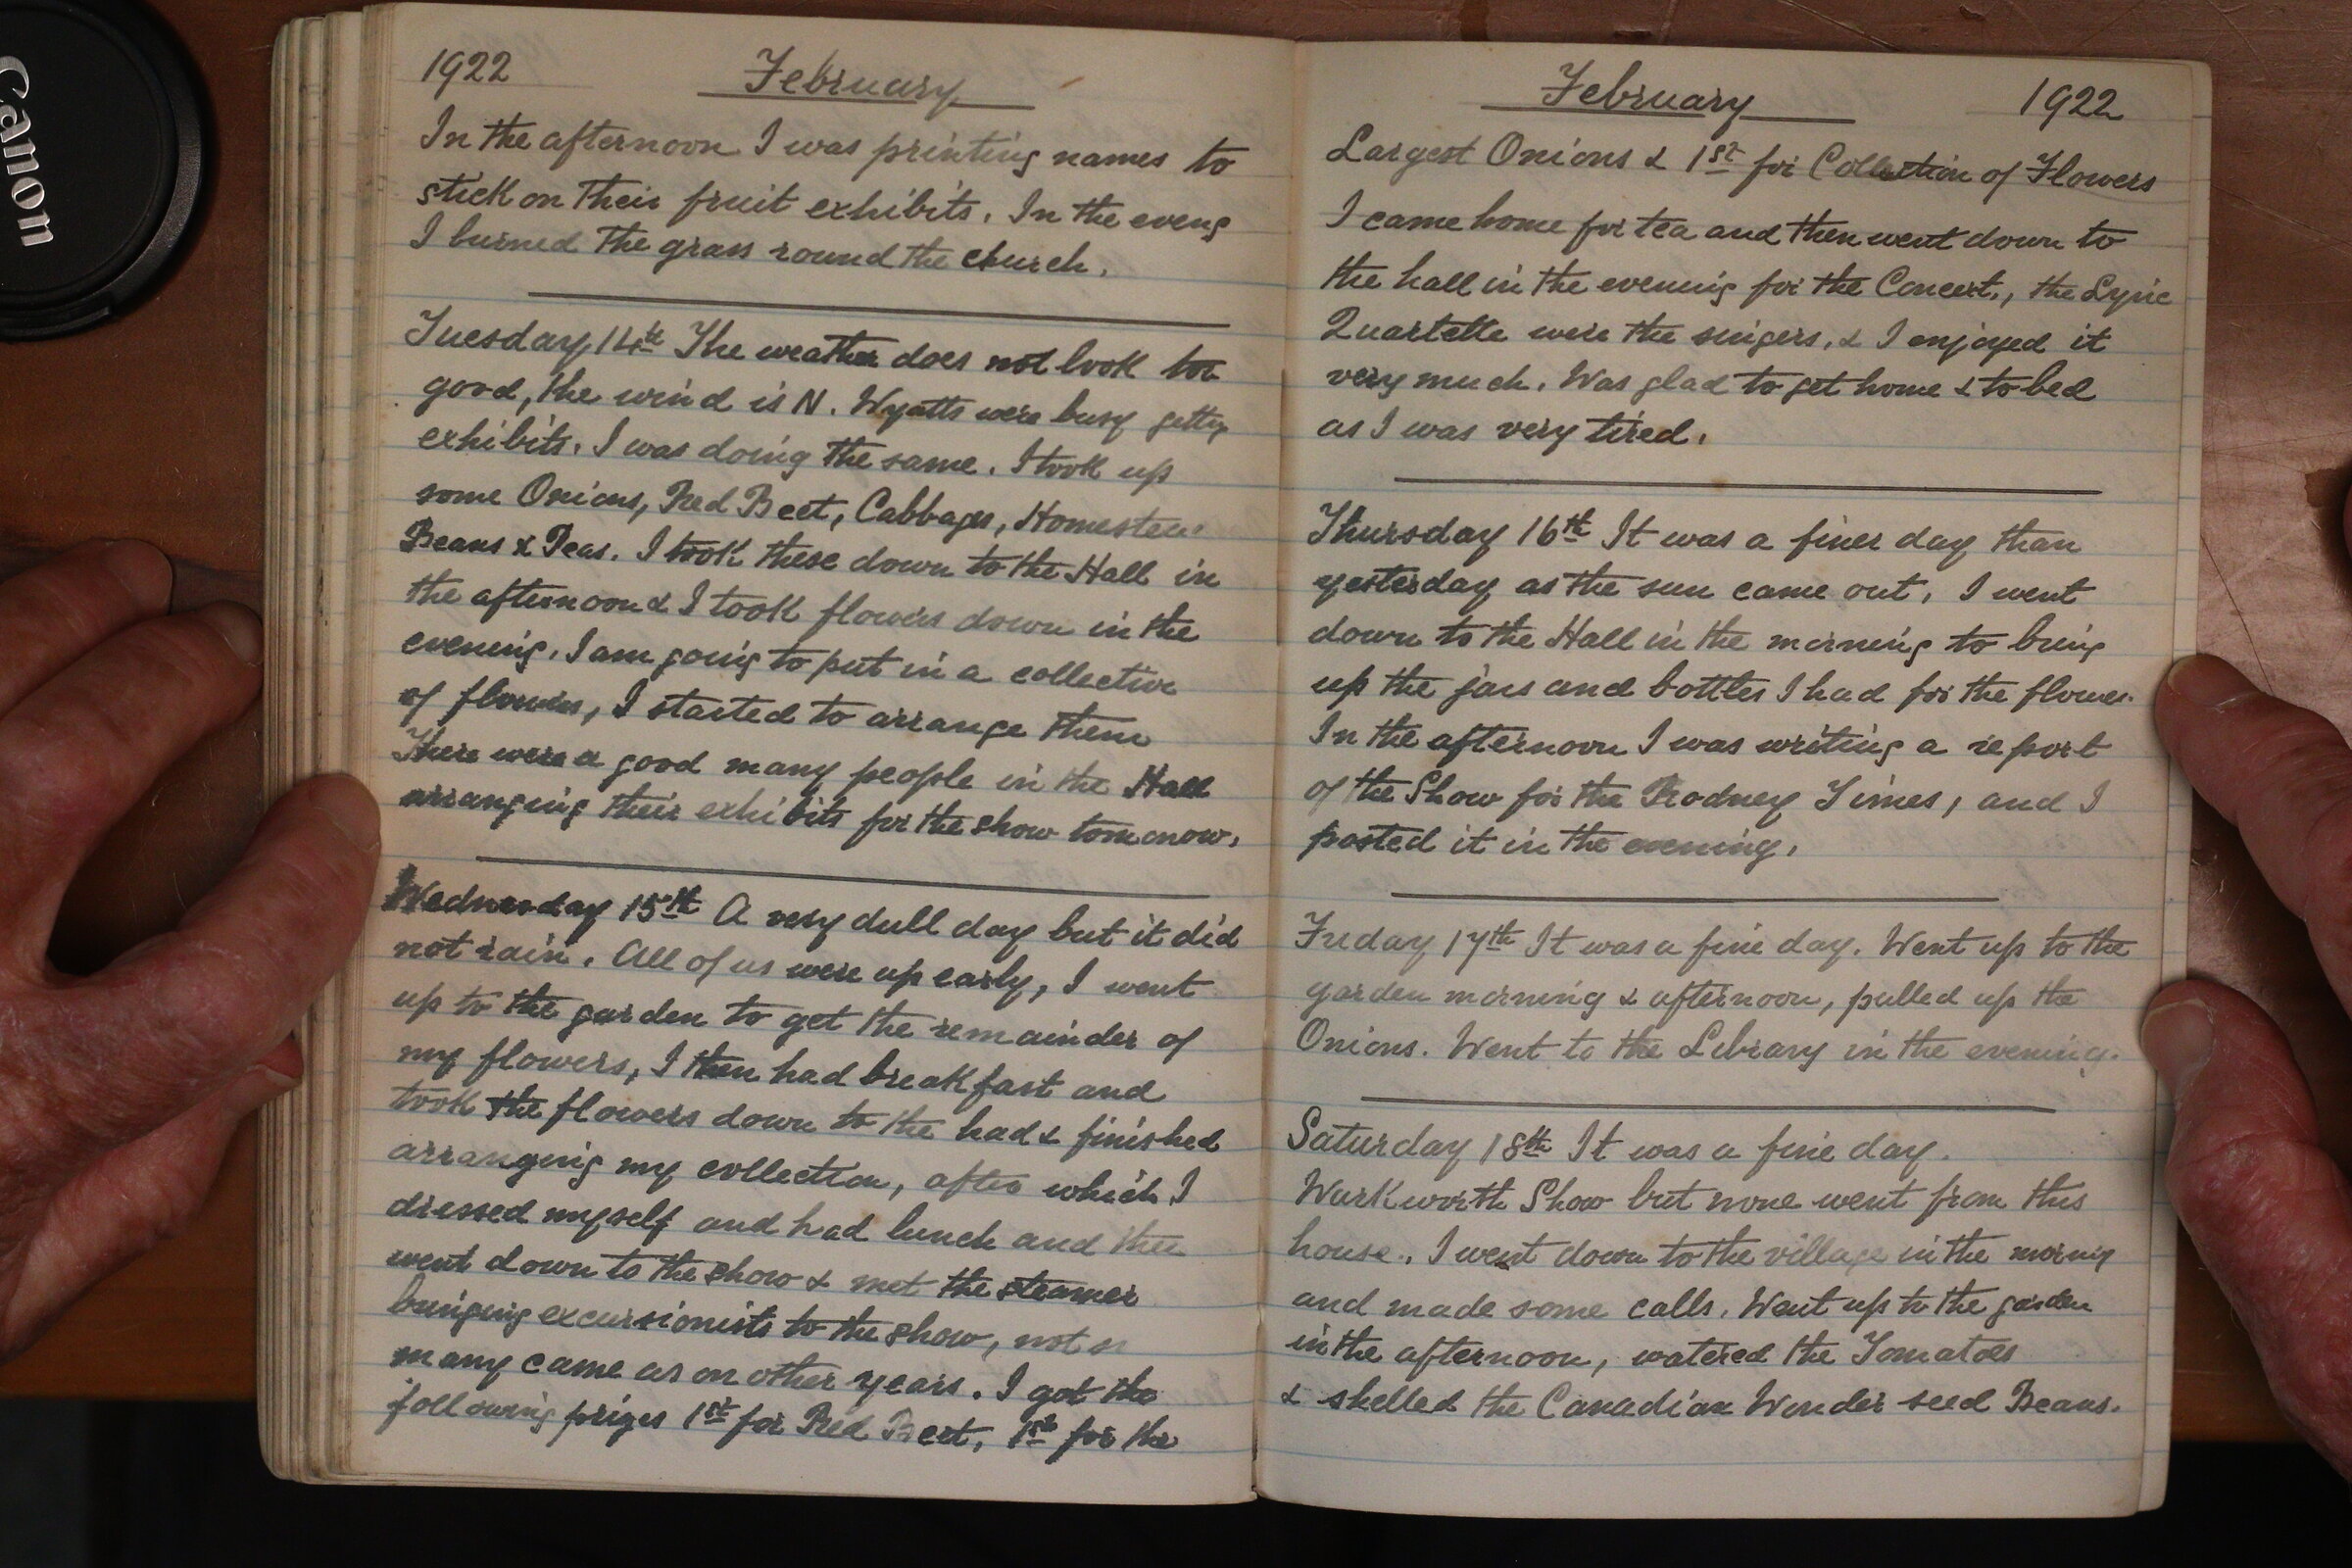 Canon
1922 February
In the afternoon I was printing names to
stick on their fruit exhibits. In the eveng
I burned the grass round the church.
Tuesday 14th The weather does not look too
good, the wind is N. Wyatts were busy getting
exhibits. I was doing the same. I took up
some Onions, Red Beet, Cabbages,
Beans & Peas. I took these down to the Hall in
the afternoon & I took flowers down in the
evening. I am going to put in a collection
of flowers, I started to arrange them
There were a good many people in the Hall
arranging their exhibits for the show tomorrow.
Wednesday 15th A very dull day but it did
not rain. All of us were up early, I went
up to the garden to get the remainder of
my flowers, I then had breakfast and
took the flowers down to the had & finished
arranging my collection, after which I
dressed myself and had lunch and then
went down to the show & met the steamer
bringing excursionists to the show, not so
many came as on other years. I got the
following prizes 1st for Red Beet, 1st for the
February 1922
Largest Onions & 1st for Collection of Flowers
I came home for tea and then went down to
the hall in the evening for the Concert., the Lyric
Quartette were the singers, & I enjoyed it
very much. Was glad to get home & to bed
as I was very tired.
Thursday 16th It was a finer day than
yesterday as the sun came out, I went
down to the Hall in the morning to bring
up the jars and bottles I had for the flowers.
In the afternoon I was writing a report
of the Show for the Rodney Times, and I
posted it in the evening.
Friday 17th It was a fine day. Went up to the
garden morning & afternoon, pulled up the
Onions. Went to the Library in the evening.
Saturday 18th It was a fine day.
Warkworth Show but none went from this
house. I went down to the village in the morning
and made some calls. Went up to the garden
in the afternoon, watered the Tomatoes
& shelled the Canadian Wonder seed Beans.